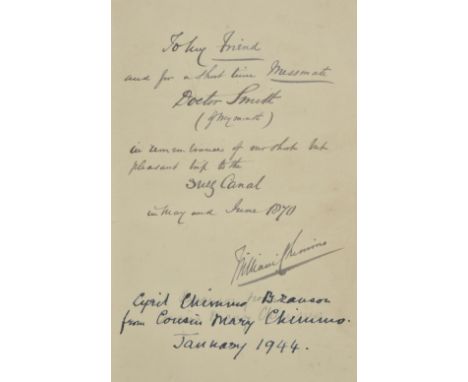 To my Friend
and for a short time Messmate
Doctor Smith
(of Weymouth)
in remembrance of our short but
pleasant trip to the
Suez Canal
in May and June 1870
William Chimmo
Cyril Chimmo Branson
from Cousin Mary Chimmo.
January 1944.